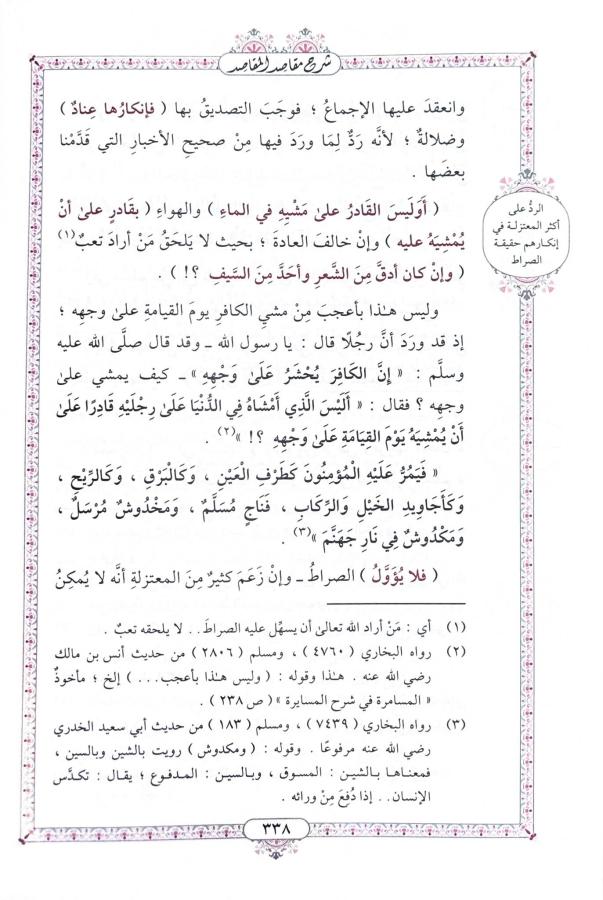 شرح مقاصد المقاصد
وانعقدَ عليها الإجماعُ ؛ فوجَبَ التصديقُ بها ( فإنكارُها عِنادٌ )
وضلالةٌ ؛ لأنَّه ردٌّ لِمَا ورَدَ فيها مِنْ صحيحِ الأخبارِ التي قَدَّمْنا
بعضَها .
( أَوَليسَ القادرُ علىٰ مَشْيِهِ في الماءِ ) والهواءِ ( بقادرٍ علىٰ أنْ
يُمْشِيَهُ عليه ) وإنْ خالفَ العادةَ ؛ بحيث لا يَلحَقُ مَنْ أرادَ تعبٌ(١)
( وإنْ كان أدقَّ مِنَ الشَّعرِ وأحَدَّ مِنَ السَّيفِ ؟! ) .
الردُّ على
أكثر المعتزلة في
إنكارهم حقيقة
الصراط
وليس هـٰذا بأعجبَ مِنْ مشيِ الكافرِ يومَ القيامةِ علىٰ وجهِه ؛
إذ قد ورَدَ أنَّ رجُلًا قال : يا رسول الله ـ وقد قال صلَّى الله عليه
وسلَّم : « إِنَّ الكَافِرَ يُحْشَرُ عَلَىٰ وَجْهِهِ » ـ كيف يمشي علىٰ
وجهِه ؟ فقال : « أَلَيْسَ الَّذِي أَمْشَاهُ فِي الدُّنْيَا عَلَىٰ رِجْلَيْهِ قَادِرًا عَلَىٰ
أَنْ يُمْشِيَهُ يَوْمَ القِيَامَةِ عَلَىٰ وَجْهِهِ ؟! »(٢) .
« فَيَمُرُّ عَلَيْهِ الْمُؤْمِنُونَ كَطَرْفِ الْعَيْنِ ، وَكَالْبَرْقِ ، وَكَالرِّيْحِ ،
وَكَأَجَاوِيدِ الخَيْلِ وَالرِّكَابِ ، فَنَاجٍ مُسَلَّمٌ ، وَمَخْدُوشٌ مُرْسَلٌ ،
وَمَكْدُوشٌ فِي نَارِ جَهَنَّمَ »(٣) .
( فلا يُؤَوَّلُ ) الصراطُ ـ وإنْ زَعَمَ كثيرٌ مِنَ المعتزلةِ أنَّه لا يُمكِنُ
(١) أي : مَنْ أراد الله تعالىٰ أن يسهِّل عليه الصراطَ . . لا يلحقه تعبٌ .
(٢) رواه البخاري ( ٤٧٦٠ ) ، ومسلم ( ٢٨٠٦ ) من حديث أنس بن مالك
رضي الله عنه . هـٰذا وقوله : ( وليس هـٰذا بأعجب... ) إلخ ؛ مأخوذٌ
« المسامرة في شرح المسايرة » ( ص ٢٣٨ ) .
(٣) رواه البخاري ( ٧٤٣٩ ) ، ومسلم ( ١٨٣ ) من حديث أبي سعيد الخدري
رضي الله عنه مرفوعًا . وقوله : ( ومكدوش ) رويت بالشين وبالسين ،
فمعناها بالشين : المسوق ، وبالسين : المدفوع ؛ يقال : تكدَّس
الإنسان . . إذا دُفعَ مِنْ ورائه .
٣٣٨